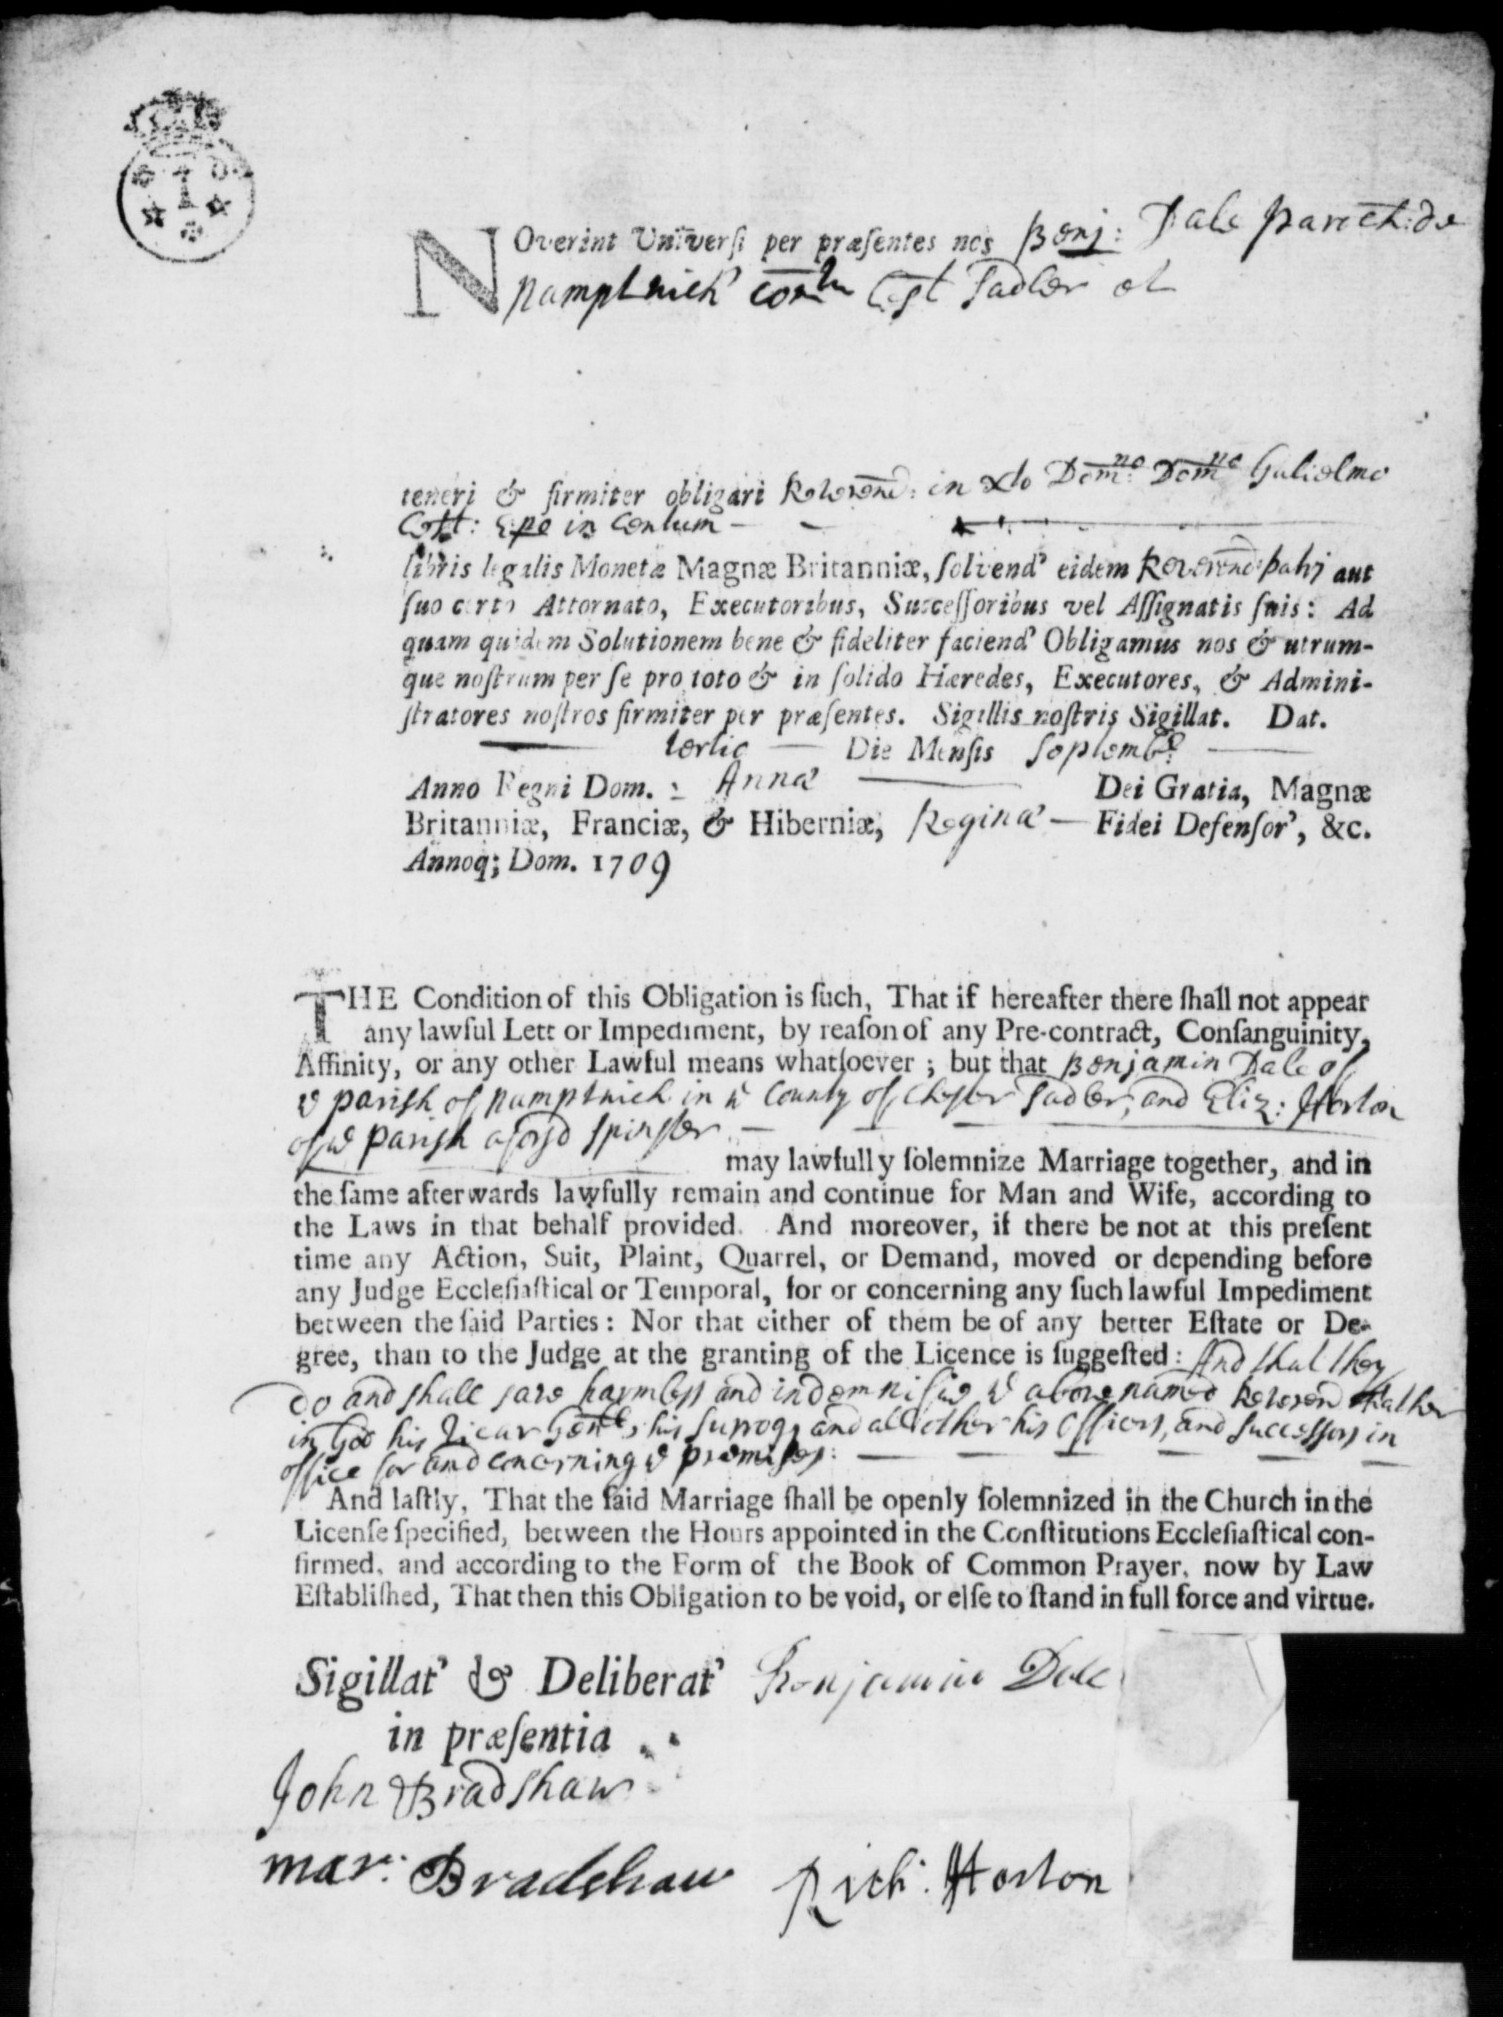 NOverint Universi per præsentes nos Benj: Dale paroch: de
Namptwich com Cest Sadler et
teneri & firmiter obligari Reverend: in xto Domno: Domno Gulielmo
Cest: Epo in Centum
libris legalis Monetæ Magnæ Britanniæ, solvend' eidem Reverend: patri aut
suo certo Attornato, Executoribus, Successoribus vel Assignatis suis: Ad
quam quidem Solutionem bene & fideliter faciend' Obligamus nos & utrum-
que nostrum per se pro toto & in solido Hæredes, Executores, & Admini-
stratores nostros firmiter per præsentes. Sigillis nostris Sigillat. Dat.
tertio Die Mensis Septembr:
Anno Regni Dom. : Annæ Dei Gratia, Magnæ
Britanniæ, Franciæ, & Hiberniæ, Reginæ Fidei Defensor', &c.
Annoq; Dom. 1709
THE Condition of this Obligation is such, That if hereafter there shall not appear
any lawful Lett or Impediment, by reason of any Pre-contract, Consanguinity,
Affinity, or any other Lawful means whatsoever ; but that Benjamin Dale of
ye parish of Namptwich in ye County of Chester Sadler, and Eliz: Horton
of ye parish aforsd Spinster
may lawfully solemnize Marriage together, and in
the same afterwards lawfully remain and continue for Man and Wife, according to
the Laws in that behalf provided. And moreover, if there be not at this present
time any Action, Suit, Plaint, Quarrel, or Demand, moved or depending before
any Judge Ecclesiastical or Temporal, for or concerning any such lawful Impediment
between the said Parties : Nor that either of them be of any better Estate or De-
gree, than to the Judge at the granting of the Licence is suggested : And shal they
do and shall save harmless and indemnifye ye above named Reverend Father
in God his Vicar Genll, his Surrogs and all other his Officers, and Successors in
office for and concerning ye premises:
And lastly, That the said Marriage shall be openly solemnized in the Church in the
License specified, between the Hours appointed in the Constitutions Ecclesiastical con-
firmed, and according to the Form of the Book of Common Prayer, now by Law
Established, That then this Obligation to be void, or else to stand in full force and virtue.
Sigillat' & Deliberat' Benjamin Dale
in præsentia
John Bradshaw
Mar: Bradshaw Rich: Horton